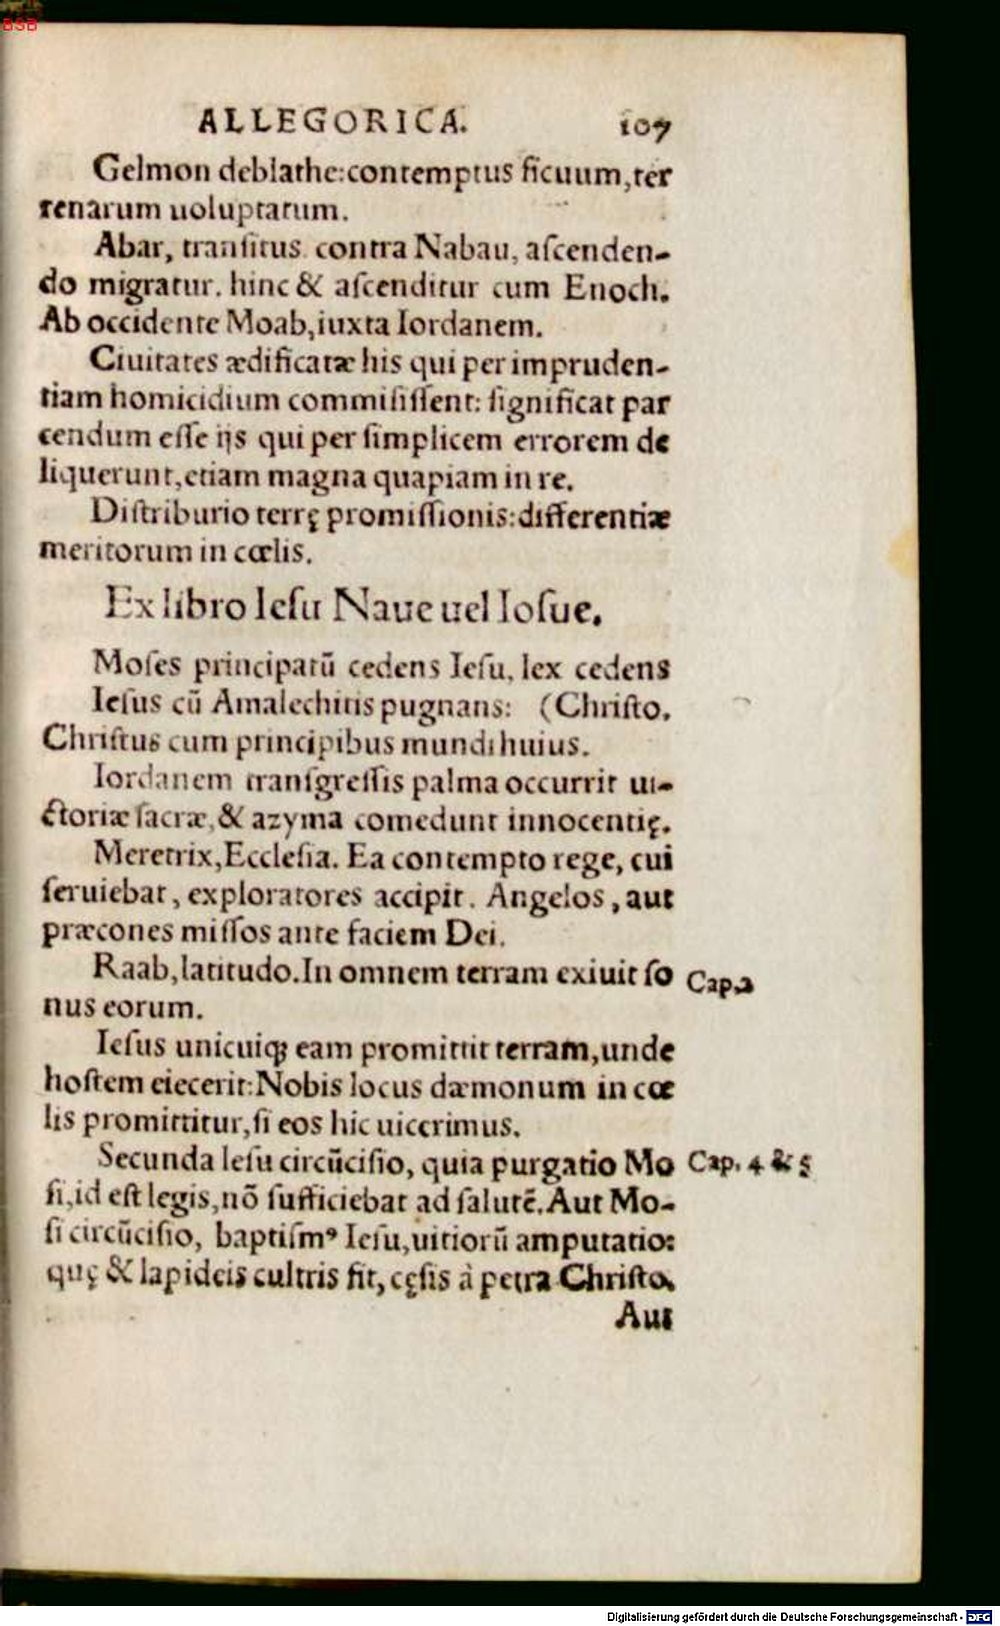 BSB
ALLEGORICA. 107
Gelmon deblathe:contemptus ficuum,ter
renarum uoluptatum.
Abar, tranſitus contra Nabau, aſcenden-
do migratur. hinc & aſcenditur cum Enoch.
Ab occidente Moab,iuxta Iordanem.
Ciuitates ædificatæ his qui per impruden-
tiam homicidium commiſiſſent: ſignificat par
cendum eſſe ijs qui per ſimplicem errorem de
liquerunt,etiam magna quapiam in re.
Diſtributio terrę promiſſionis:differentiæ
meritorum in cœlis.
Ex libro Ieſu Naue uel Ioſue.
Moſes principatū cedens Ieſu, lex cedens
Ieſus cū Amalechitis pugnans: (Chriſto.
Chriſtus cum principibus mundi huius.
Iordanem tranſgreſſis palma occurrit ui-
ctoriæ ſacræ,& azyma comedunt innocentię.
Meretrix,Eccleſia. Ea contempto rege, cui
ſeruiebat, exploratores accipit. Angelos, aut
præcones miſſos ante faciem Dei.
Raab,latitudo.In omnem terram exiuit ſo Cap.2
nus eorum.
Ieſus unicuiqꝫ eam promittit terram,unde
hoſtem eiecerit:Nobis locus dæmonum in cœ
lis promittitur,ſi eos hic uicerimus.
Secunda Ieſu circūciſio, quia purgatio Mo Cap. 4 & 5
ſi,id eſt legis,nō ſufficiebat ad ſalutē.Aut Mo-
ſi circūciſio, baptiſmꝰ Ieſu,uitiorū amputatio:
quę & lapideis cultris fit, cęſis à petra Chriſto.
Aut
Digitalisierung gefördert durch die Deutsche Forschungsgemeinschaft - DFG